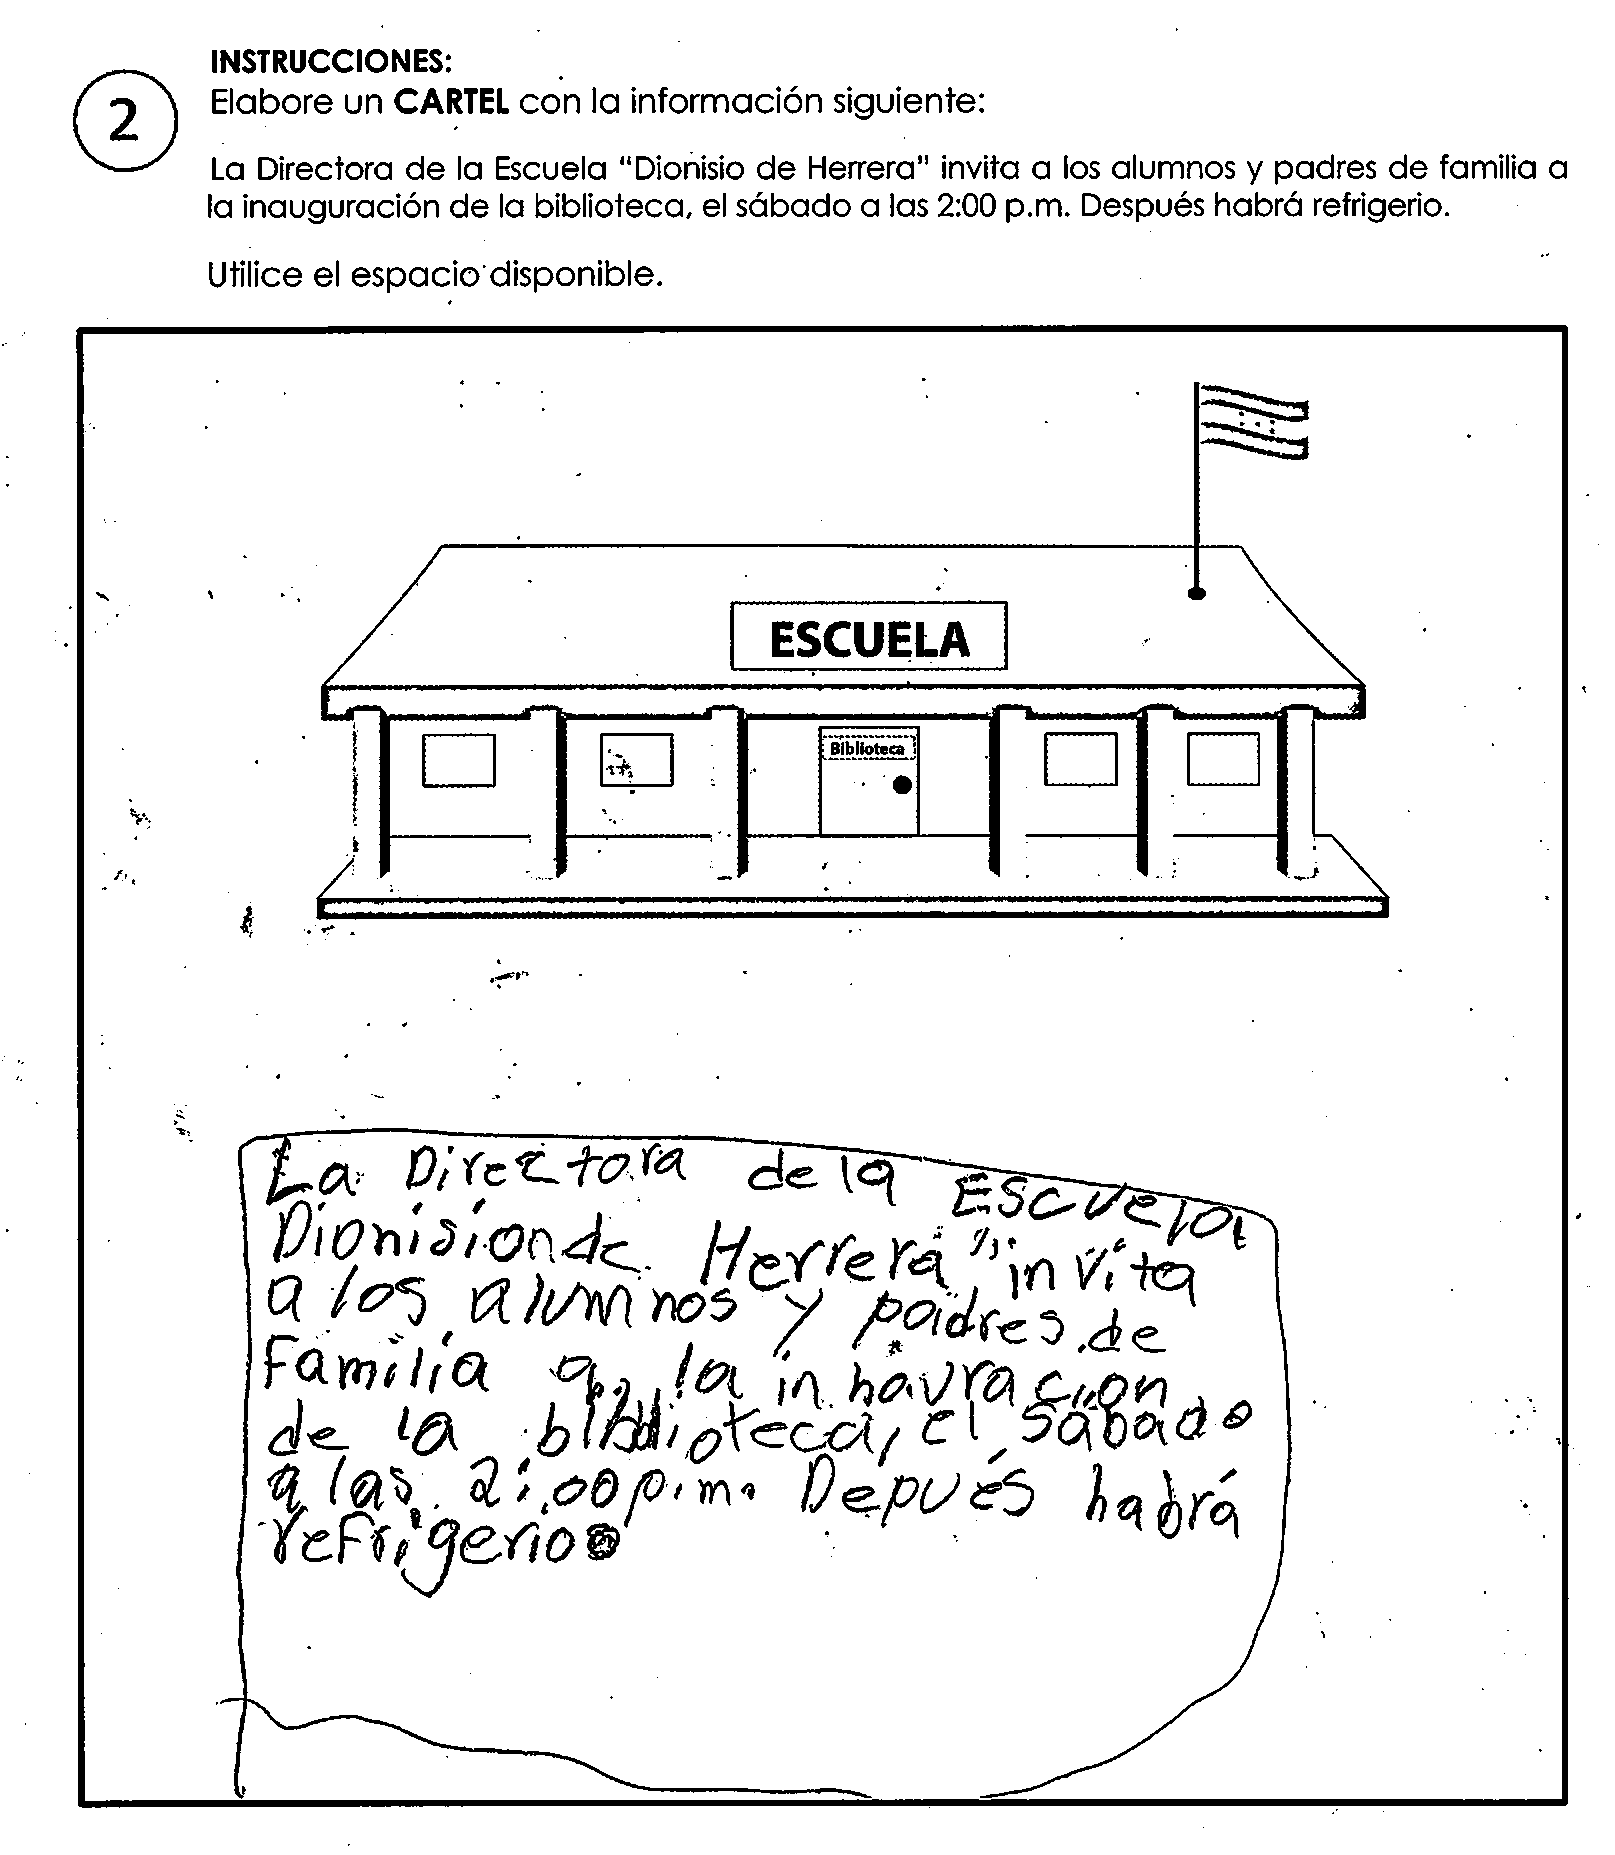 INSTRUCCIONES:
2
Elabore un CARTEL con la información siguiente:
La Directora de la Escuela "Dionisio de Herrera" invita a los alumnos y padres de familia a
la inauguración de la biblioteca, el sábado a las 2:00 p.m. Después habrá refrigerio.
Utilice el espacio disponible.
ESCUELA
Biblioteca
La Directora de la Escuela
Dionision de Herrera" invita
a los alumnos y padres de
Familia a la inhauracion
de la biblioteca, el sábado
a las 2:00 p.m. Depués habrá
refrigerio.